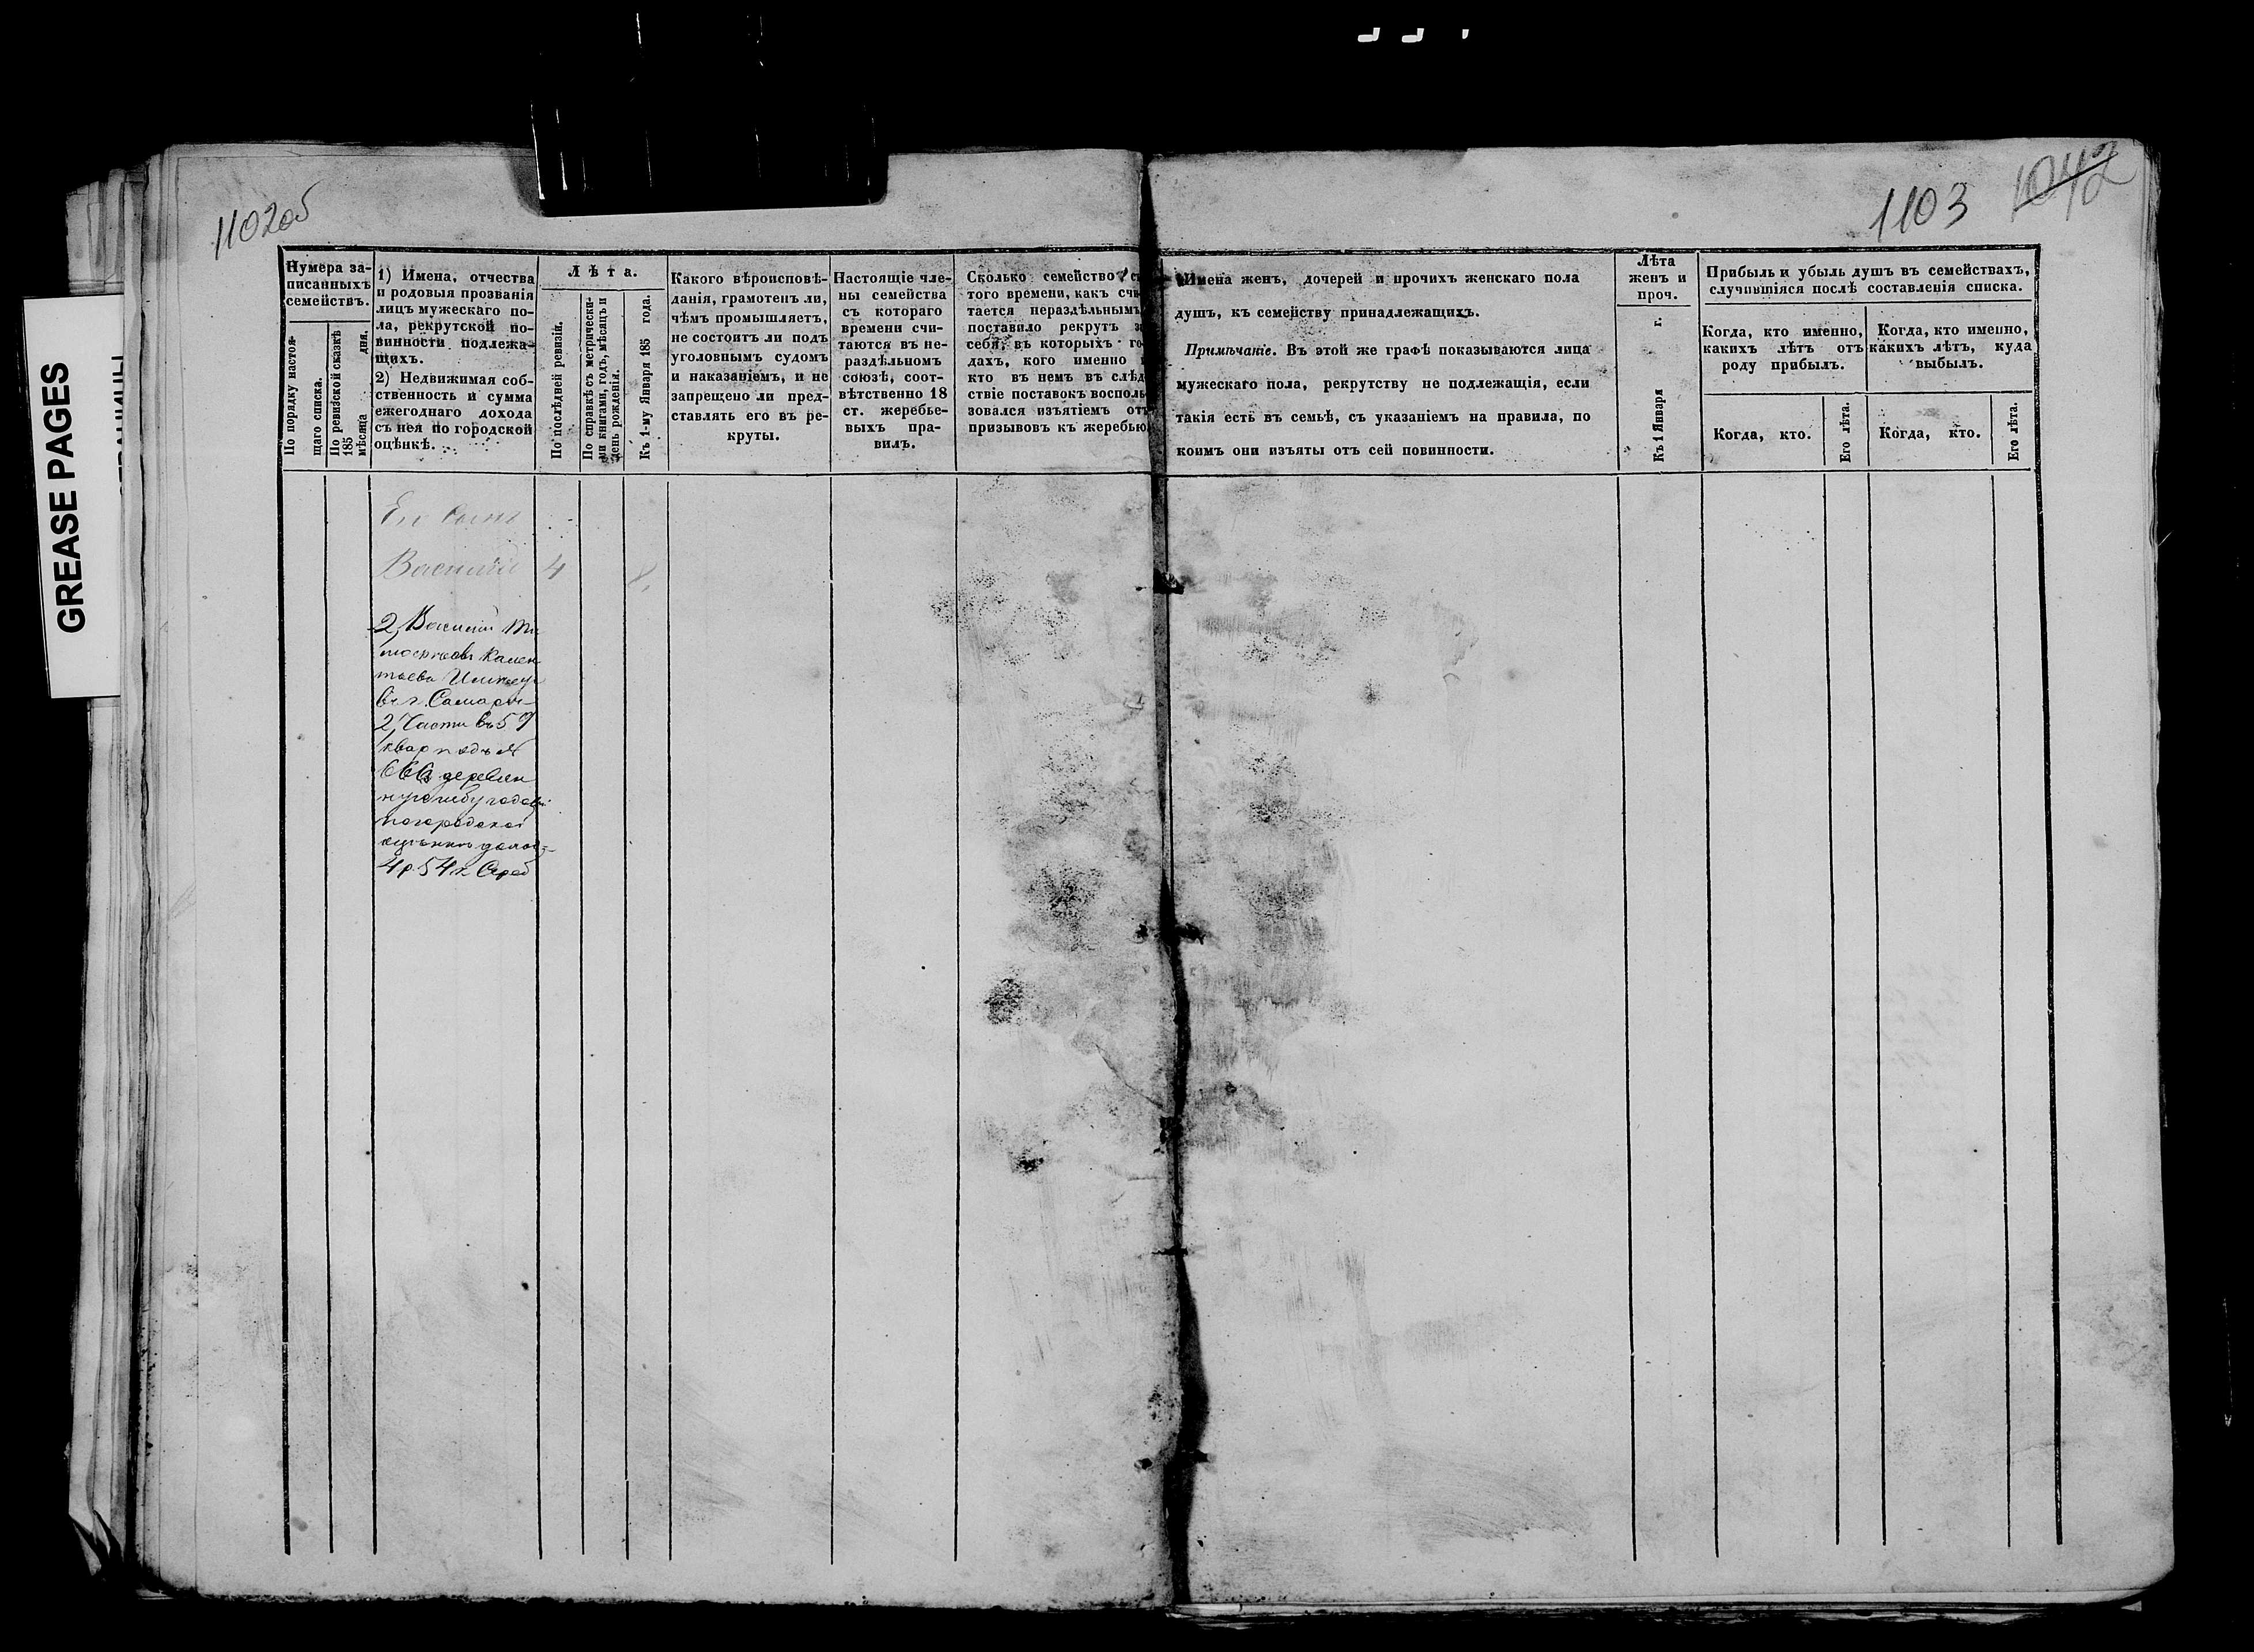 GREASE PAGES
1102об
1103
1042
Нумера за-
писанныхъ
семействъ.
По порядку настоя-
щаго списка.
По ревизской сказкѣ
185
мѣсяца дня.
1) Имена, отчества
и родовыя прозванія
лицъ мужескаго по-
ла, рекрутской по-
винности подлежа-
щихъ.
2) Недвижимая соб-
ственность и сумма
ежегоднаго дохода
съ нея по городской
оцѣнкѣ.
Лѣта.
По послѣдней ревизіи.
По справкѣ съ метрически-
ми книгами, годъ, мѣсяцъ и
день рожденія.
Къ 1-му Января 185 года.
Какого вѣроисповѣ-
данія, грамотенъ ли,
чѣмъ промышляетъ,
не состоитъ ли подъ
уголовнымъ судомъ
и наказаніемъ, и не
запрещено ли пред-
ставлять его въ ре-
круты.
Настоящіе чле-
ны семейства
съ котораго
времени счи-
таются въ не-
раздѣльномъ
союзѣ, соот-
вѣтственно 18
ст. жеребье-
выхъ пра-
вилъ.
Сколько семейство с
того времени, какъ счи
тается нераздѣльнымъ
поставило рекрутъ з
себя, въ которыхъ го
дахъ, кого именно и
кто въ немъ въ слѣд
ствіе поставокъ восполь
зовался изъятіемъ отъ
призывовъ къ жеребью
Имена женъ, дочерей и прочихъ женскаго пола
душъ, къ семейству принадлежащихъ.
Примѣчаніе. Въ этой же графѣ показываются лица
мужескаго пола, рекрутству не подлежащія, если
такія есть въ семьѣ, съ указаніемъ на правила, по
коимъ они изъяты отъ сей повинности.
Лѣта
женъ и
проч.
Къ 1 Января г.
Прибыль и убыль душъ въ семействахъ,
случившіяся послѣ составленія списка.
Когда, кто именно,
какихъ лѣтъ отъ
роду прибылъ.
Когда, кто.
Его лѣта.
Когда, кто именно,
какихъ лѣтъ, куда
выбылъ.
Когда, кто.
Его лѣта.
Его сынъ
Василій 4 8.
2, Василій Ти
мофѣевъ Камен
въ г. Самарѣ
2, Части въ 5
квар подъ №
666 деревен
ную избу
по городской
оцѣнкѣ
4 р. 54 к. Сереб